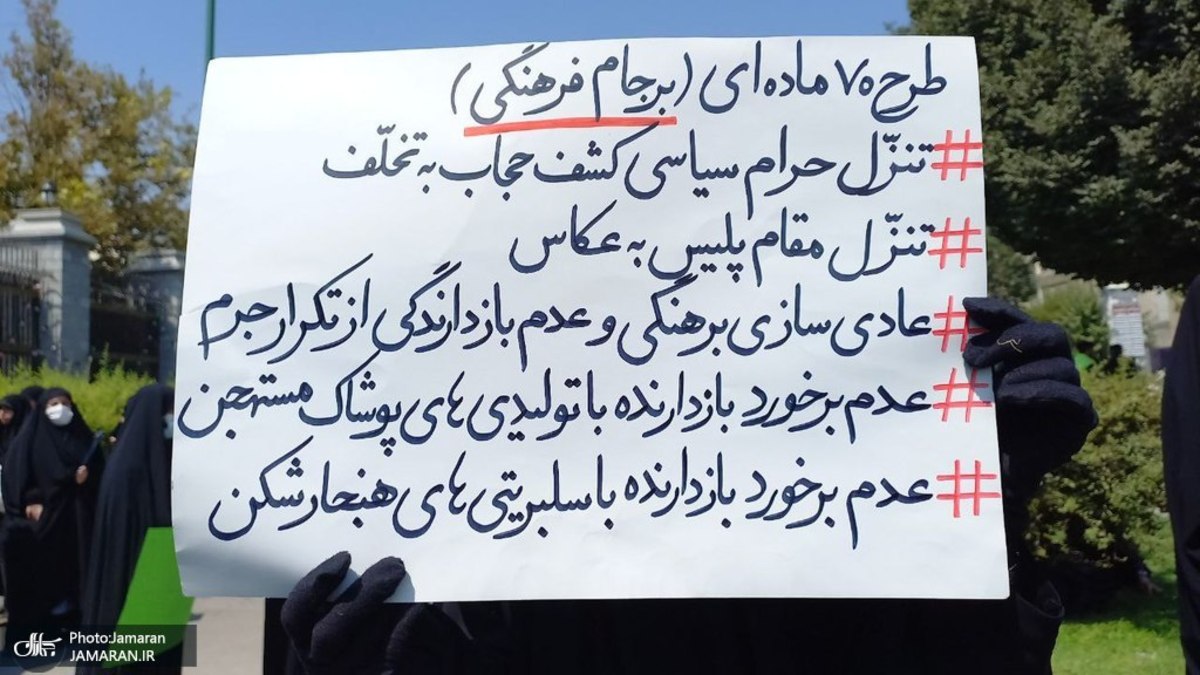 طرح ۷۰ ماده ای (برجام فرهنگی)
# تنزّل حرام سیاسی کشف حجاب به تخلّف
# تنزّل مقام پلیس به عکاس
# عادی سازی برهنگی و عدم بازدارندگی از تکرار جرم
# عدم برخورد بازدارنده با تولیدی های پوشاک مستهجن
# عدم برخورد بازدارنده با سلبریتی های هنجارشکن
جماران
Photo:Jamaran
JAMARAN.IR